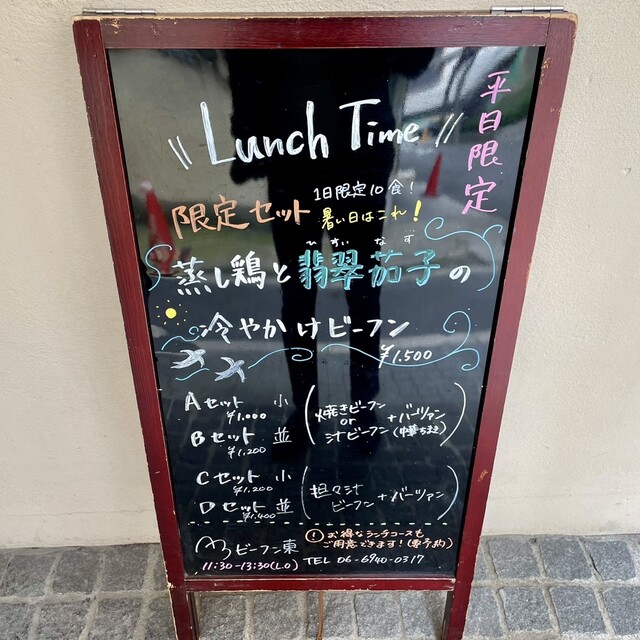 平日限定
Lunch Time
1日限定10食!
限定セット 暑い日はこれ!
ひすい なす
蒸し鶏と翡翠茄子の
冷やかけビーフン
¥1,500
Aセット 小
¥1,000
Bセット 並
¥1,200
(焼きビーフン or 汁ビーフン + バーツァン(中華ちまき))
Cセット 小
¥1,200
Dセット 並
¥1,400
(担々汁ビーフン + バーツァン)
! お得なランチコースも
ご用意できます!(要予約)
ビーフン東
11:30-13:30(L.O) TEL 06-6940-0317